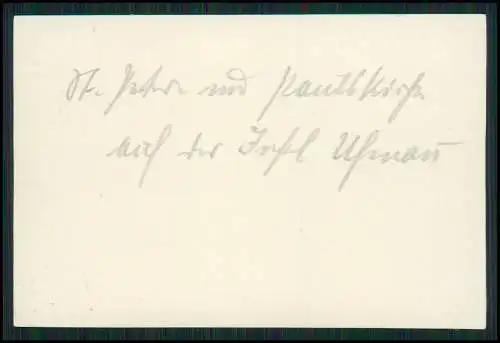 St. Peter und Paulskirche
auf der Insel Ufenau